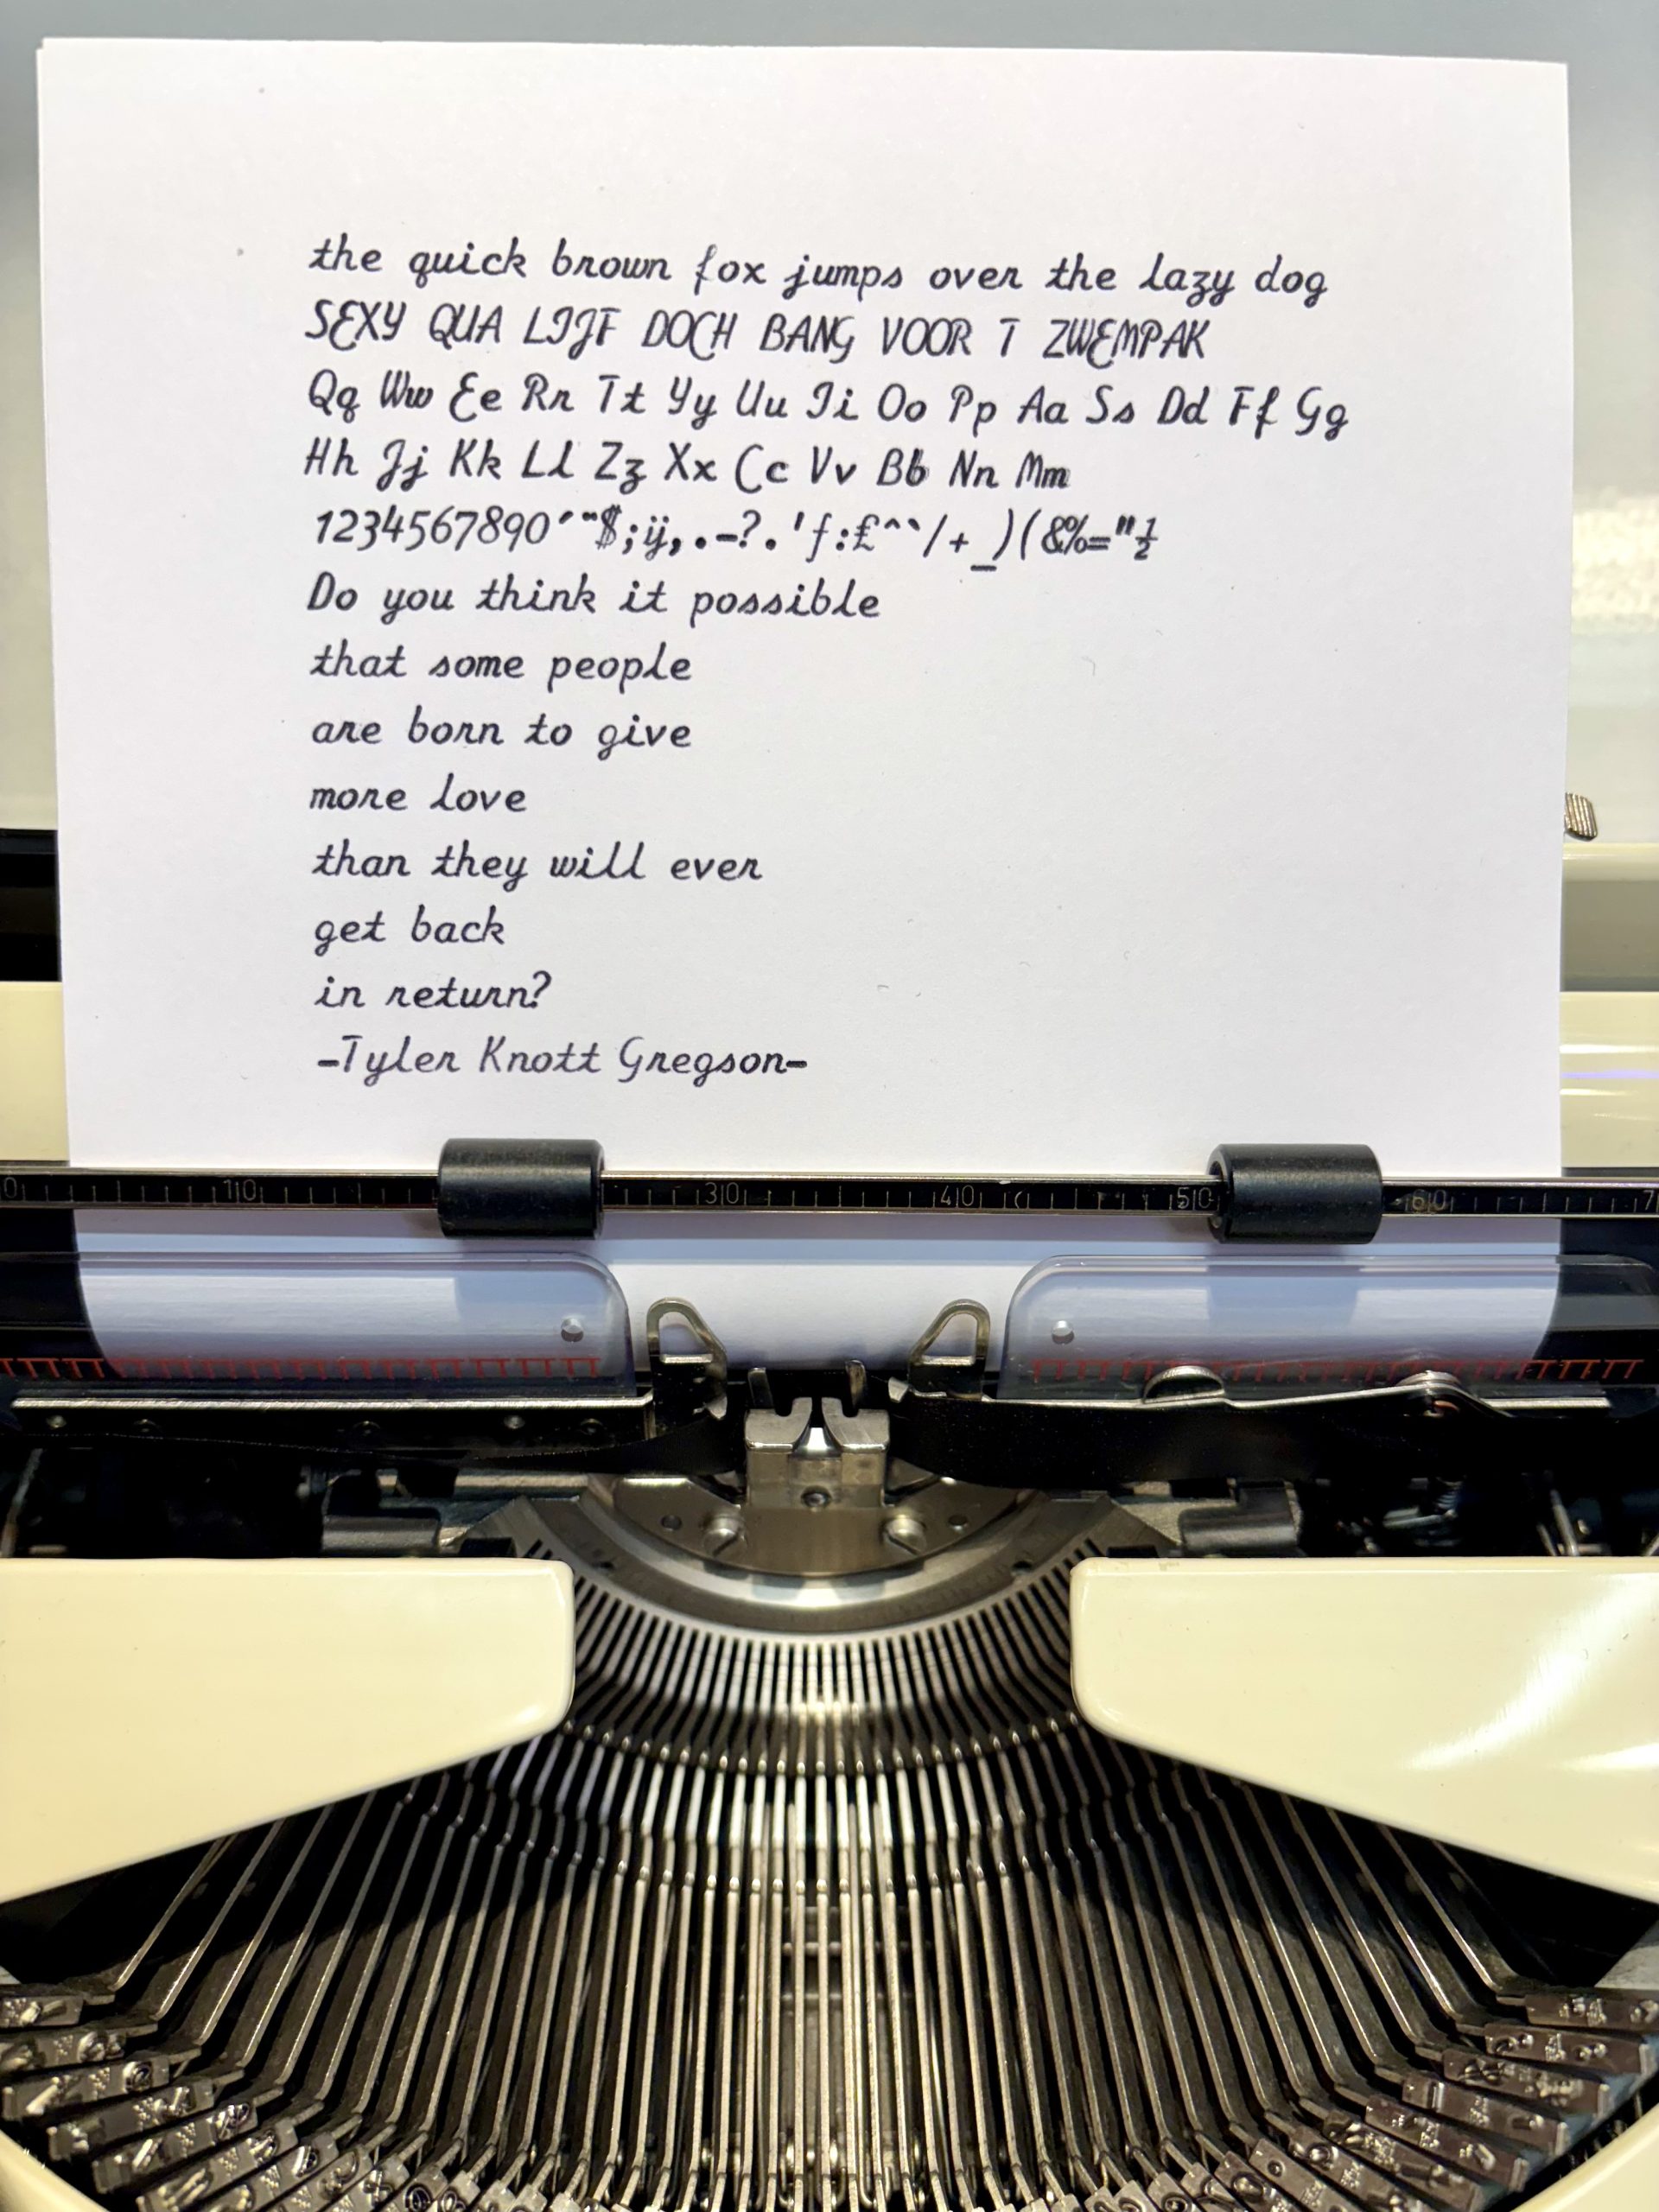 the quick brown fox jumps over the lazy dog
SEXY QUA LIJF DOCH BANG VOOR T ZWEMPAK
Qq Ww Ee Rr Tt Yy Uu Ii Oo Pp Aa Ss Dd Ff Gg
Hh Jj Kk Ll Zz Xx Cc Vv Bb Nn Mm
1234567890´¨$;ij,.-?.'ƒ:£^`/+_)(&%="½
Do you think it possible
that some people
are born to give
more love
than they will ever
get back
in return?
-Tyler Knott Gregson-
0 10 30 40 50 60 7